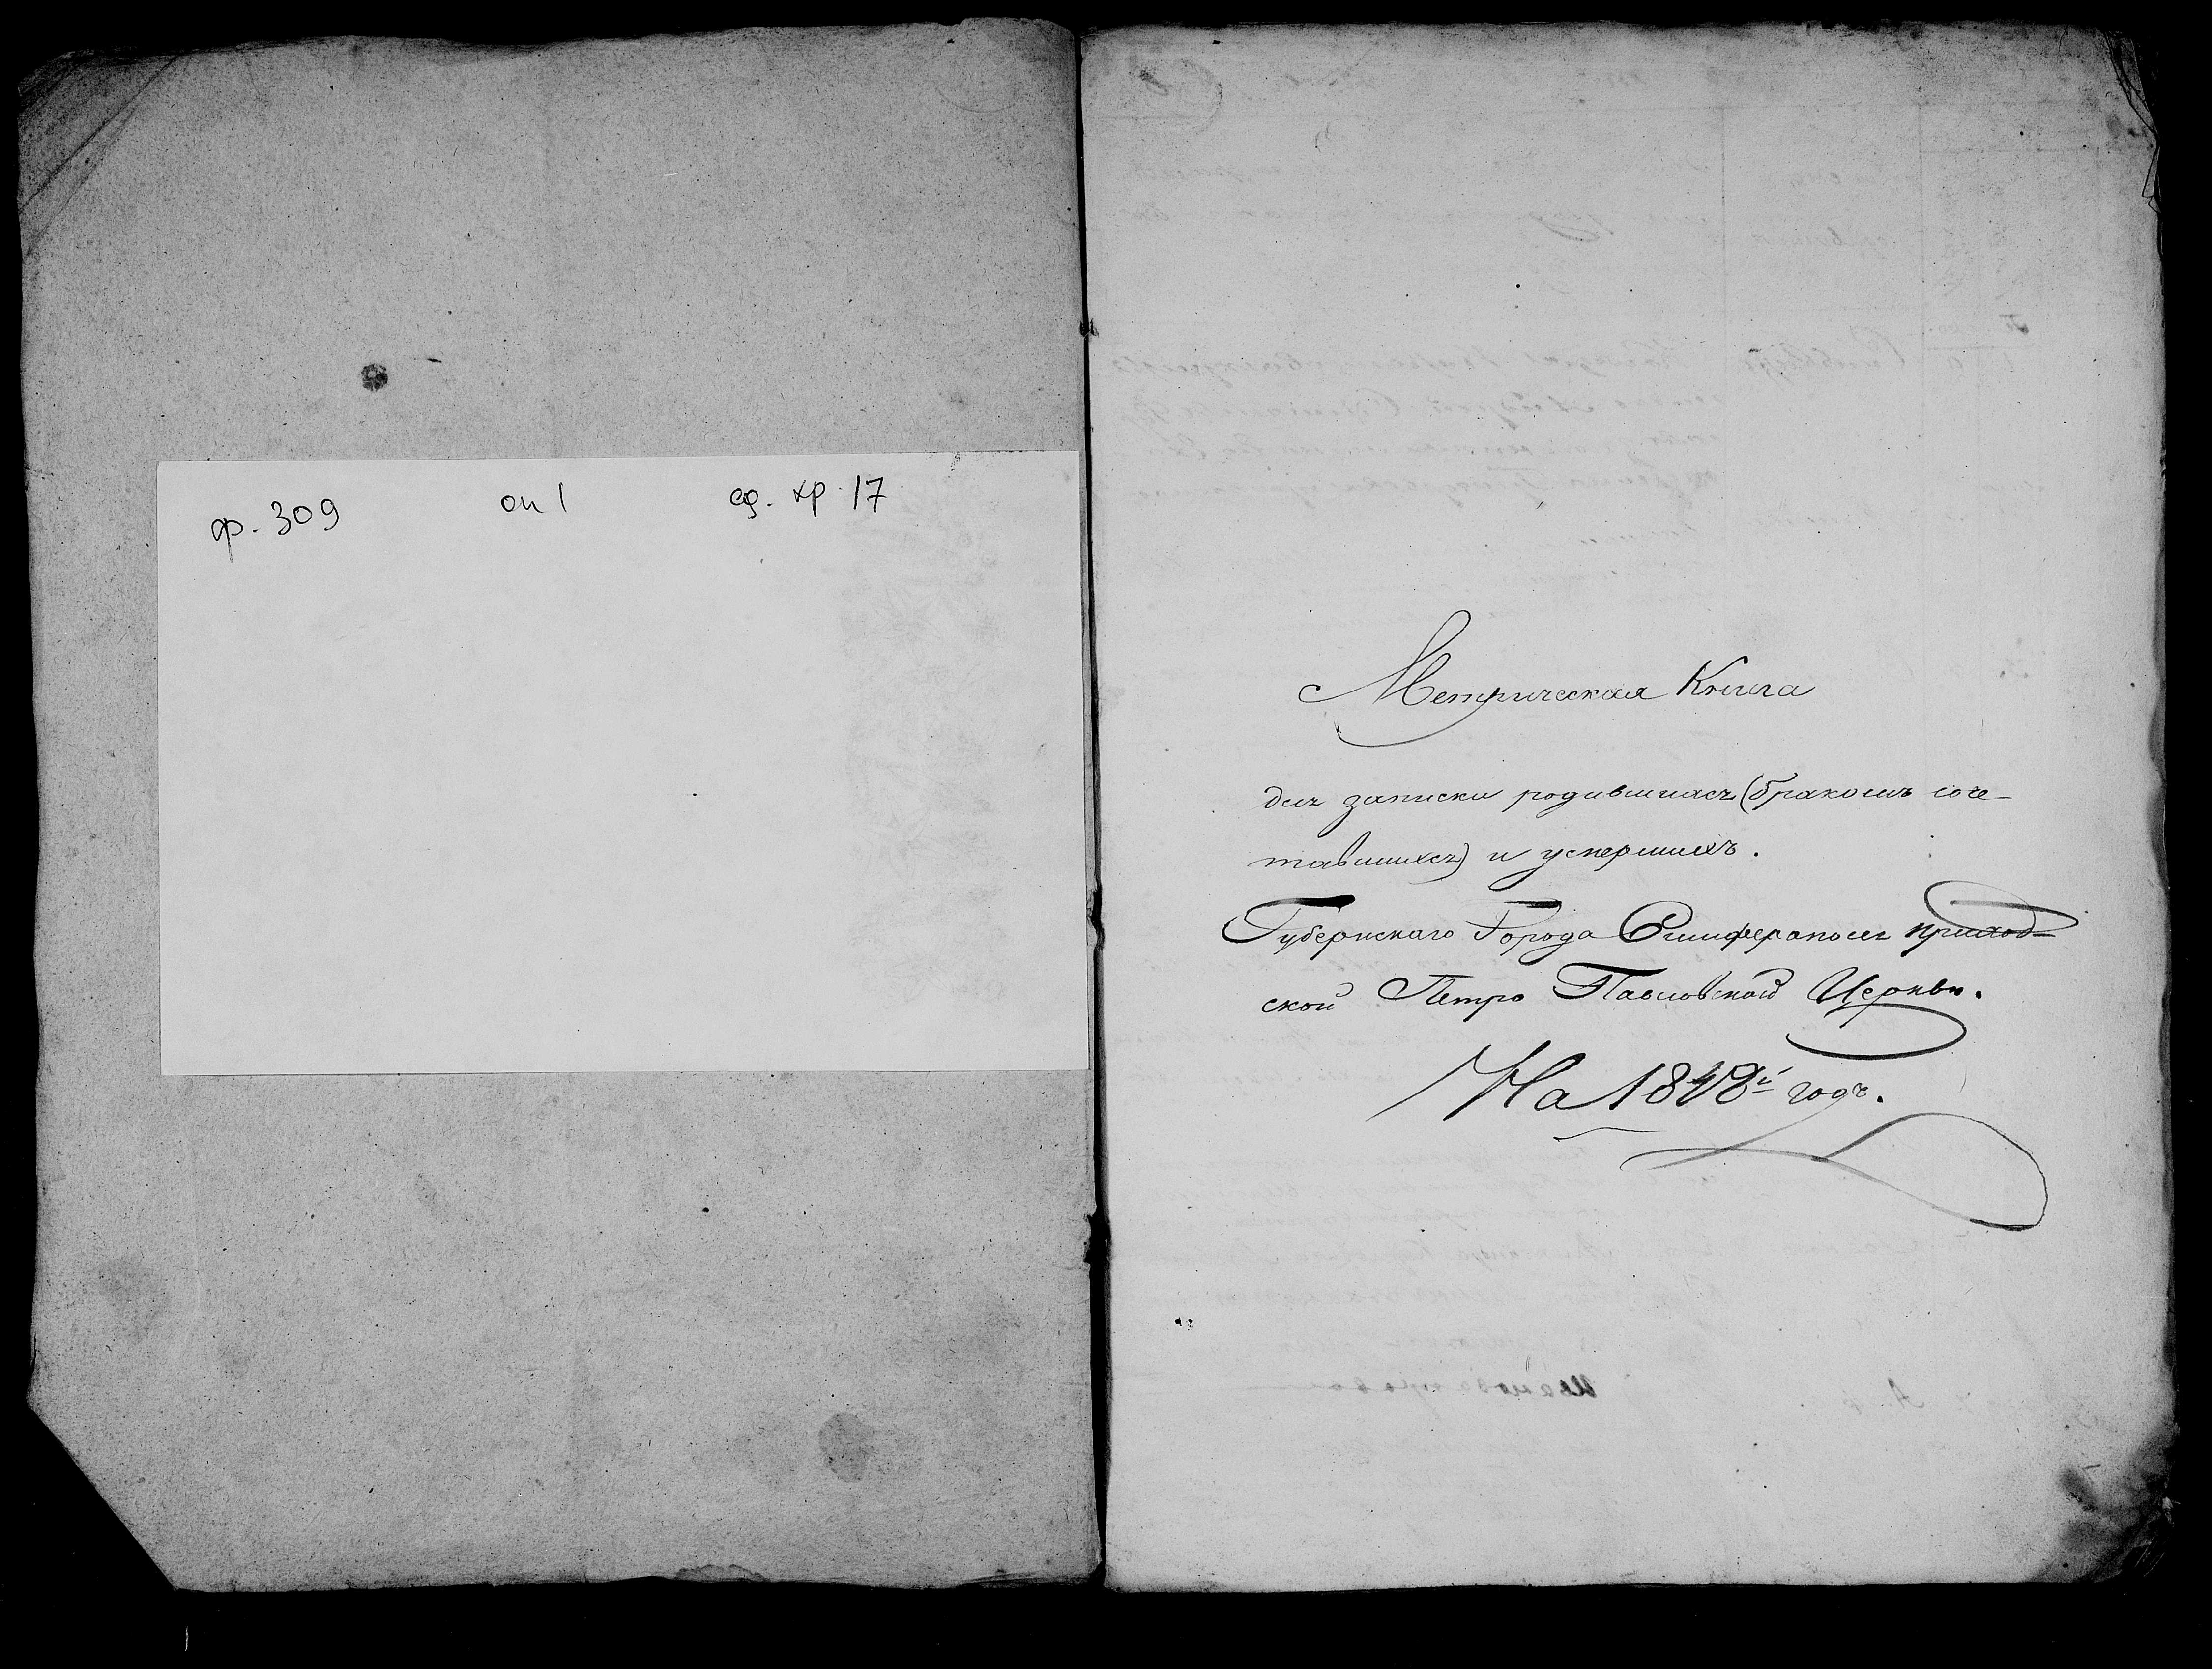 ф. 309 оп 1 ед. хр. 17
Метрическая Книга
для записки родившихся (бракомъ соче-
тавшихся) и умершихъ.
Губернскаго Города Симферополя приход-
ской Петро Павловской Церкви.
На 1848й годъ.